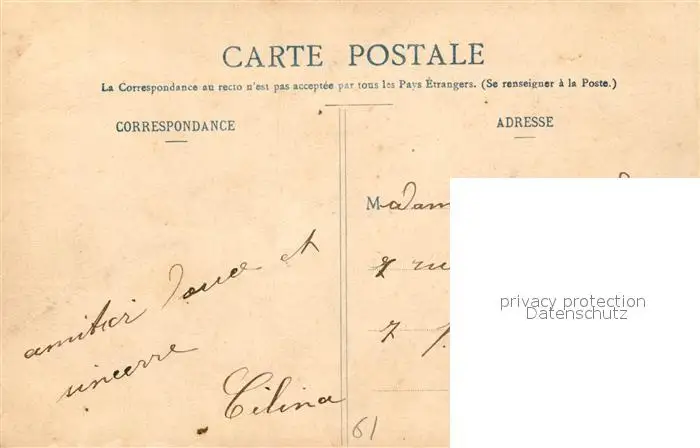 CARTE POSTALE
La Correspondance au recto n'est pas acceptée par tous les Pays Étrangers. (Se renseigner à la Poste.)
CORRESPONDANCE
amitier douce et
sincerre
Cilina
ADRESSE
Madam
7 ru
7
61
privacy protection
Datenschutz